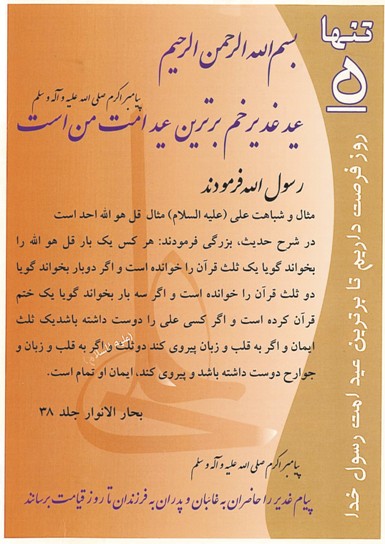 تنها
۱۵
روز فرصت داریم تا برترین عید امت رسول خدا
بسم الله الرحمن الرحیم
پیامبر اکرم صلی الله علیه و آله و سلم
عید غدیر خم برترین عید امت من است
رسول الله فرمودند
مثال و شباهت علی (علیه السلام) مثال قل هو الله احد است
در شرح حدیث، بزرگی فرمودند: هر کس یک بار قل هو الله را
بخواند گویا یک ثلث قرآن را خوانده است و اگر دوبار بخواند گویا
دو ثلث قرآن را خوانده است و اگر سه بار بخواند گویا یک ختم
قرآن کرده است و اگر کسی علی را دوست داشته باشدیک ثلث
ایمان و اگر به قلب و زبان پیروی کند دوثلث و اگر به قلب و زبان و
جوارح دوست داشته باشد و پیروی کند، ایمان او تمام است.
بحار الانوار جلد ۳۸
پیامبر اکرم صلی الله علیه و آله و سلم
پیام غدیر را حاضران به غائبان و پدران به فرزندان تا روز قیامت برسانند